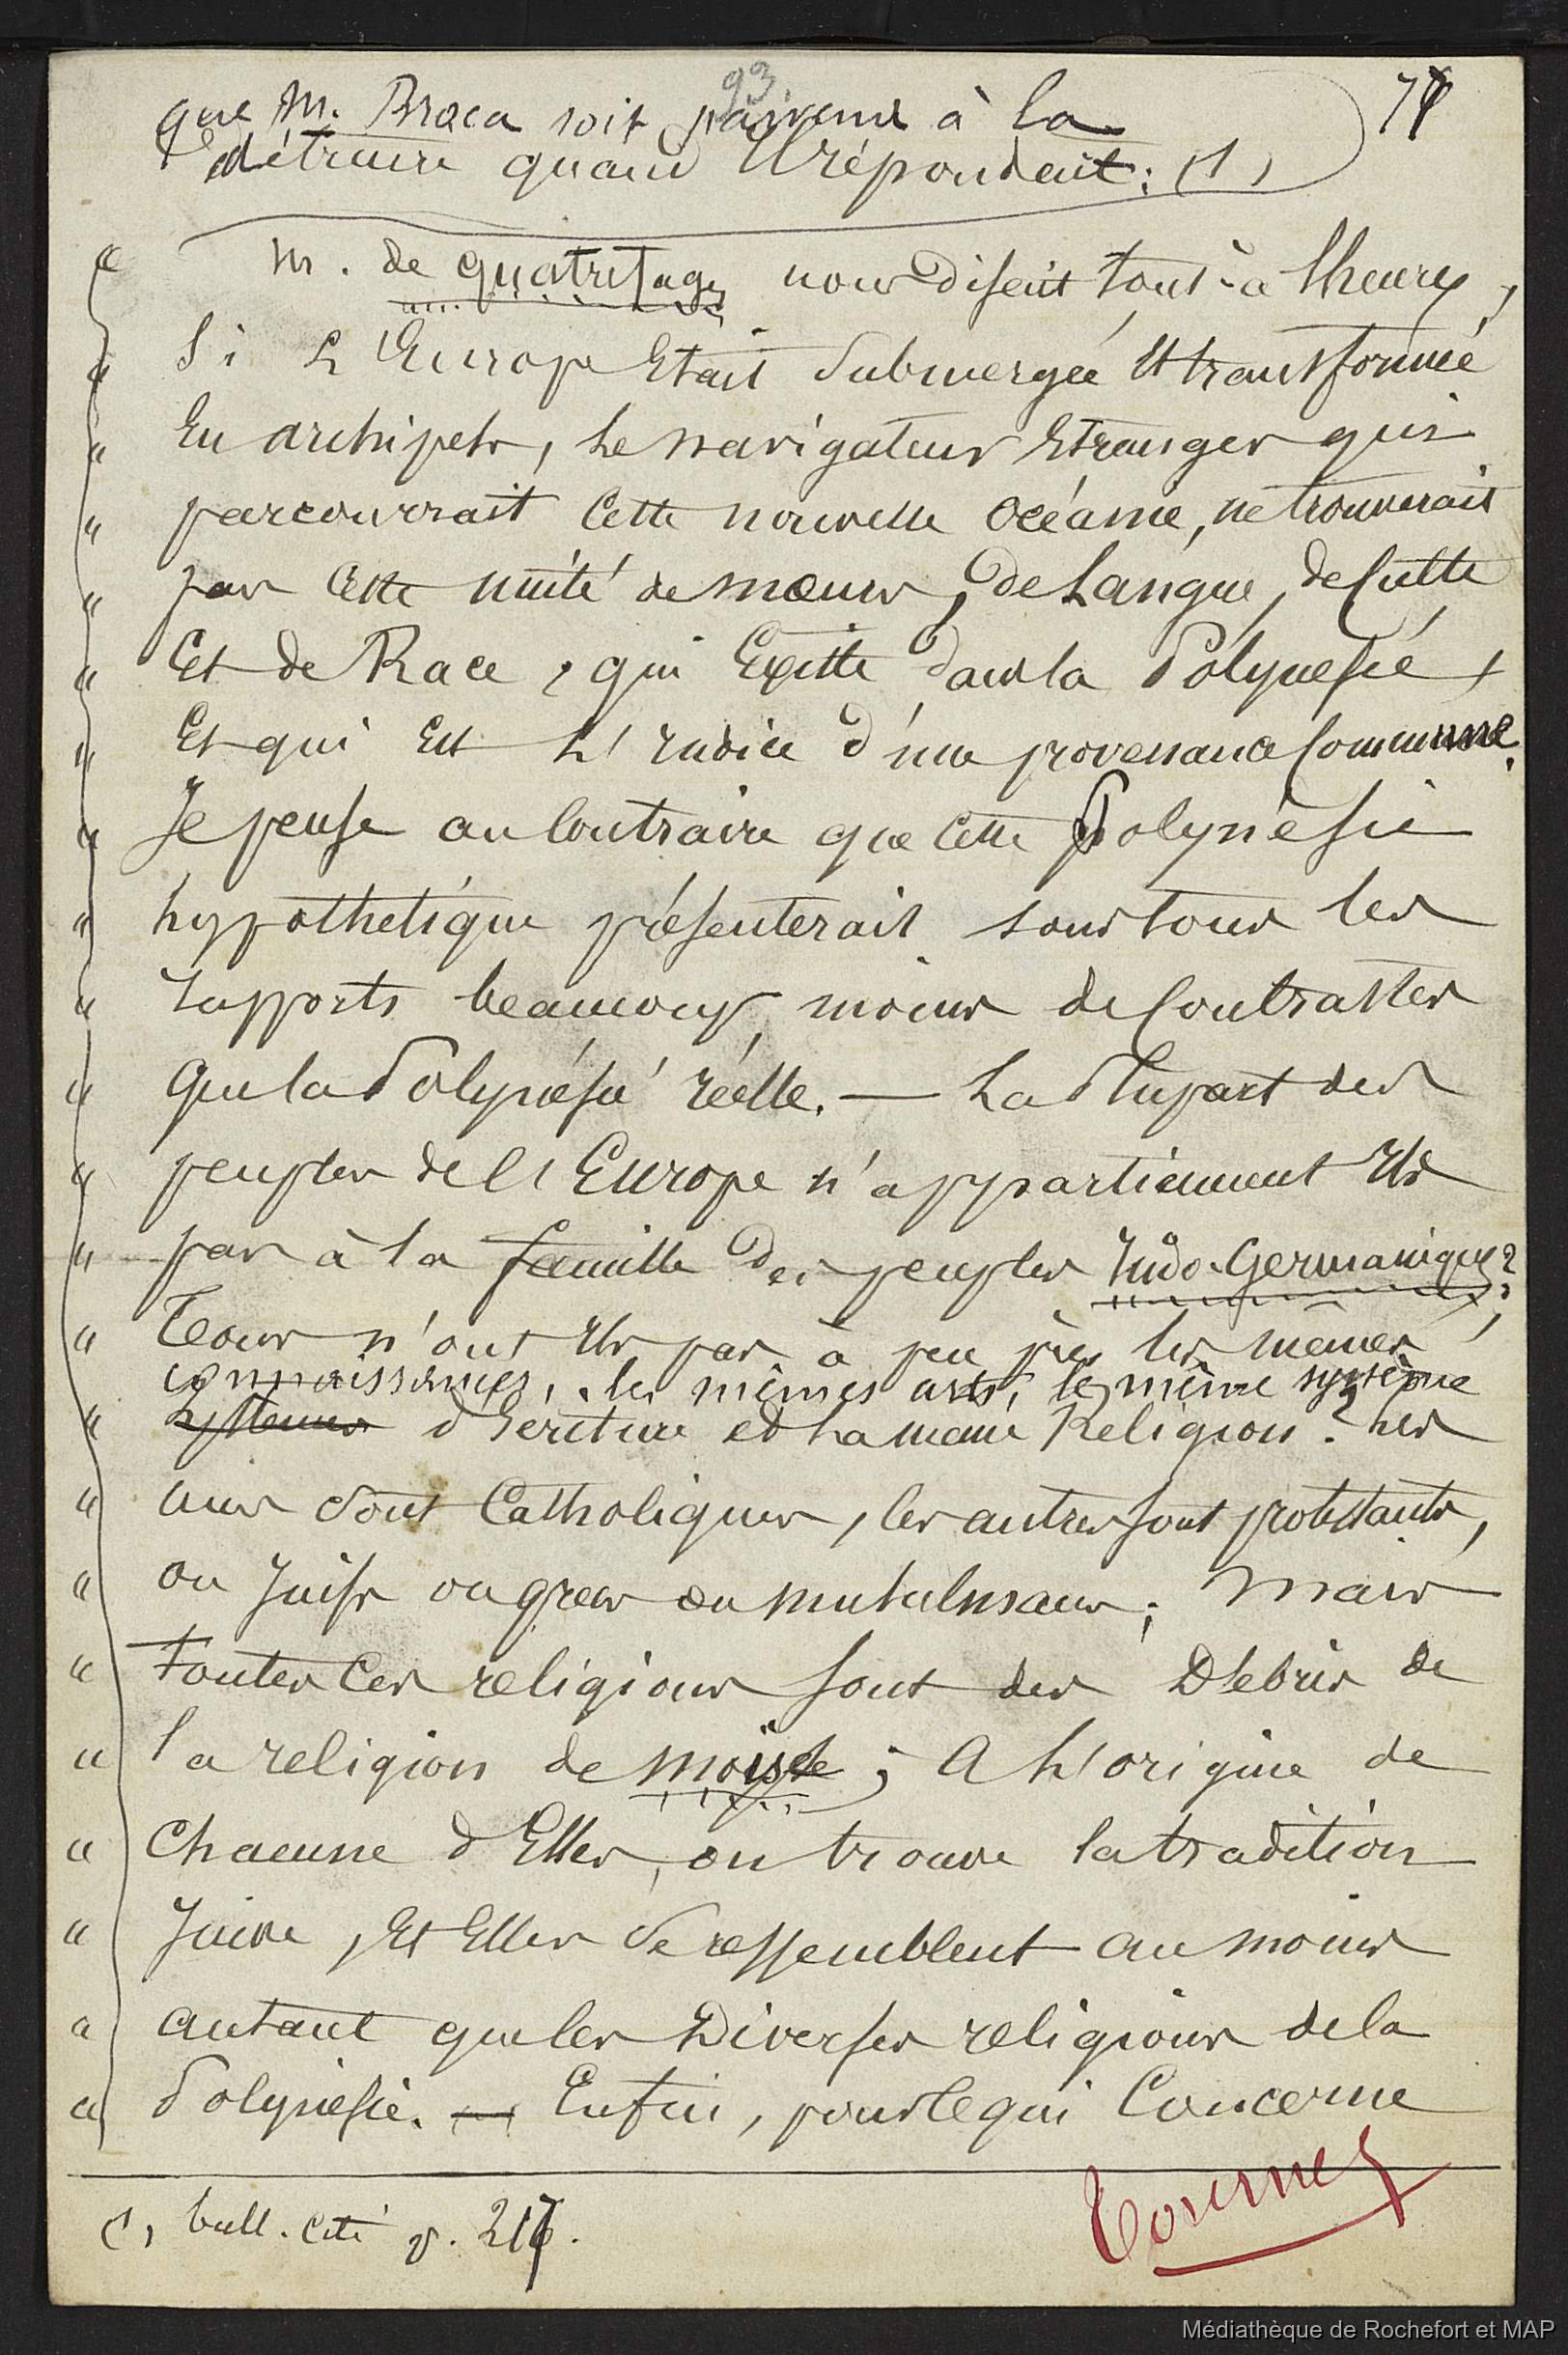 93
77
que M. Broca soit parvenu à la
détruire quand il répondait: (1)
" M. de quatrefages nous disait tout-à l'heure,
" Si L'Europe Etait Submergée Et transformée
" En archipels, Le navigateur Etranger qui
" parcourrait Cette nouvelle océanie, ne trouverait
" pas Cette unité de mœurs, de Langue, de Culte
" Et de Race, qui Existe dans la Polynesie,
" Et qui Est L'indice d'une provenance Commune.
" Je pense au Contraire que Cette Polynésie
" hypothetique présenterait sous tous les
" rapports beaucoup moins de Contrastes
" Que la Polynésie réelle. — La Plupart des
" peuples de l'Europe n'appartiennent ils
" pas à la famille des peuples Indo-Germaniques?
" Tous n'ont ils pas à peu près les mêmes
connaissances, les mêmes arts, le même système
" Systemes d'écriture et La même Religion? Les
" uns sont Catholiques, les autres sont protestants,
" ou Juifs ou grecs ou musulmans; Mais
" Toutes Ces religions sont des Debris de
" la religion de Moïse; A L'origine de
" Chacune d'Elles, on trouve la tradition
" Juive, Et Elles se ressemblent au moins
" autant que les Diverses religions de la
" Polynesie. — Enfin, pour Ce qui Concerne
(1) bull. cité p. 217.
Tournez
Médiathèque de Rochefort et MAP